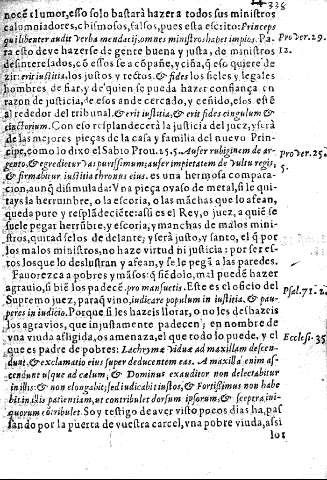 338
nocẽ el umor, esso solo bastarà hazer a todos sus ministros
calumniadores, chismosos, falsos, pues esta escrito: Princeps
qui libenter audit verba mendacij, omnes ministros habet impios. Pa-
ra esto deve hazerse de gente buena y justa, de ministros
desinteresados, cõ essos se acõpañe, y ciña, q̃ esso quiere de-
zir: erit iustitia, los justos y rectus. & fides los fieles y legales
hombres de fiar, y de quien se pueda hazer confiança en
razon de justicia, de essos ande cercado, y ceñido, essos estẽ
al rededor del tribunal. & erit iustitia, & erit fides cingulum &
cinctorium. Con esso resplandecerà la justicia del juez, y serà
de las mejores pieças de la casa y familia del nuevo Prin-
cipe, como lo dixo el Sabio Prou. 25.5. Aufer rubiginem de ar-
gento, & egredietur vas purissimum; aufer impietatem de vultu regis,
& firmabitur iustitia thronus eius. es una hermosa compara-
cion, aunq̃ dissimulada: Vna pieça o vaso de metal, si le qui-
tays la herrumbre, o la escoria, o las mãchas que lo afean,
queda puro y resplãdeciẽte: assi es el Rey, o juez, a quiẽ se
suele pegar herrũbre, y escoria, y manchas de malos mini-
stros, quitadselos de delante; y serà justo, y santo, el q̃ por
los malos ministros, no haze virtud ni justicia: por ser es-
tos los que lo deslustran y afean, y se le pegã a las paredes.
Fauorezca a pobres y mãsos: q̃ siẽdolo, mal puedẽ hazer
agrauio, si biẽ los padecẽ. pro mansuetis. Este es el oficio del
Supremo juez, paraq̃ vino, iudicare populum in iustitia, & pau-
peres in iudicio. Porque si les hazeis llorar, o no les deshazeis
los agravios, que injustamente padecen; en nombre de
vna viuda afligida, os amenaza, el que todo lo puede, y el
que es padre de pobres: Lachrymæ Viduæ ad maxillam descen-
dunt, & exclamatio eius super deducentem eas. A maxilla enim as-
cendunt usque ad cælum, & Dominus exauditor non delectabitur
in illis: & non elongabit, sed iudicabit iustos, & Fortissimus non habe
bit in illis patientiam, ut contribulet dorsum ipsorum, & sceptra ini-
quorum cõtribulet. Soy testigo de aver visto pocos dias ha, pas
sando por la puerta de vuestra carcel, vna pobre viuda, assi
los
Prover. 29.
12.
Prover. 25.
5.
Psal. 71. 2.
Eccles. 35